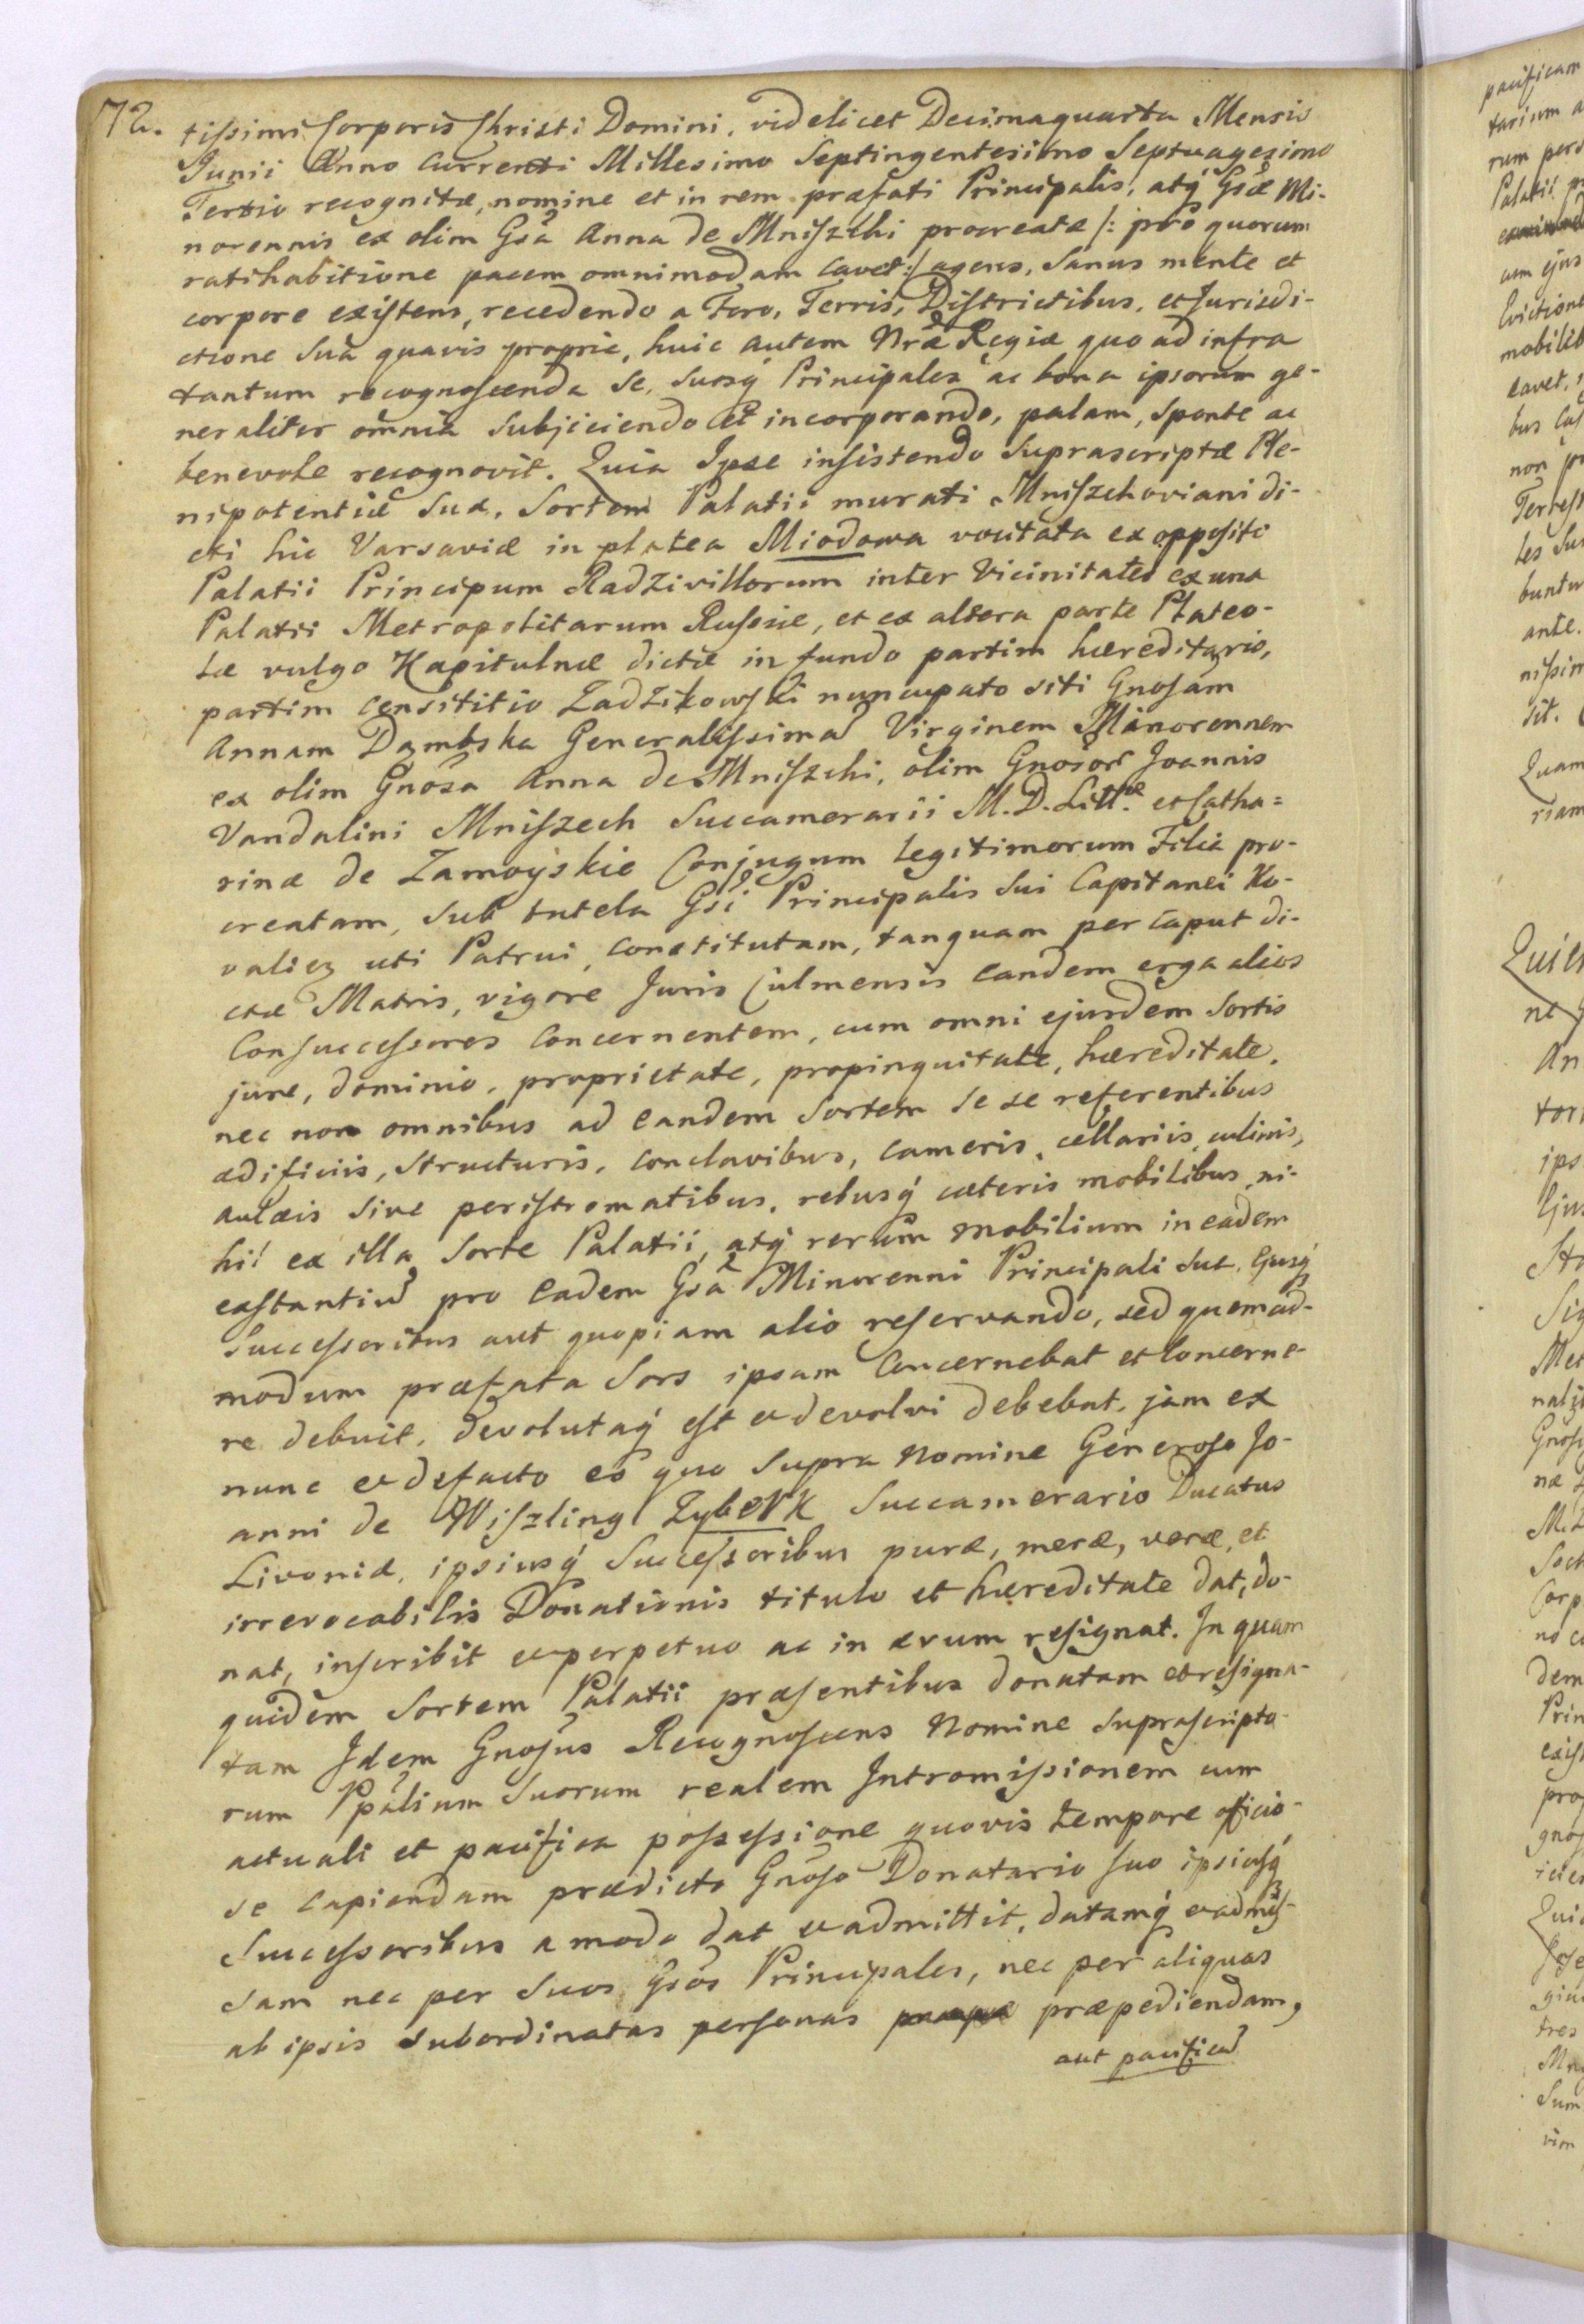 72.
tissimi Corporis Christi Domini, videlicet Decimaquarta Mensis
Junii Anno Currenti Millesimo Septingentesimo Septuagesimo
Tertio recognitæ, nomine et in rem præfati Principalis, atq́ Gsæ Mi-
norennis ex olim Gsa Anna de Mniszchi procreatæ /: pro quorum
ratihabitione pacem omnimodam cavet :/ agens, Sanus mente et
corpore existens, recedendo a Foro, Terris, Districtibus, et Jurisdi-
ctione Sua quavis propria, huic autem Nræ Regiæ quo ad infra
tantum recognoscenda Se, Suosq́ Principales ac bona ipsorum ge-
neraliter omnia Subjiciendo Et incorporando, palam, Sponte ac
benevole recognovit. Quia Ipse insistendo Suprascriptæ Ple-
nipotentiæ Suæ, Sortem Palatii murati Mniszchoviani di-
cti hic Varsaviæ in platea Miodowa vocitata ex oppositi
Palatii Principum Radzivillorum inter Vicinitates ex una
Palatii Metropolitarum Russiæ, et ex altera parte Plateo-
læ vulgo Kapitulnæ dictæ in fundo partim hæreditario,
partim Censititio Zadzikowski nuncupato siti Gnosam
Annam Dąmbska Generalissima Virginem Minorennem
ex olim Gnosa Anna de Mniszchi, olim Gnosor Joannis
Vandalini Mniszech Succamerarii M. D. Litt.æ et Catha=
rinæ de Zamoyskie Conjugum legitimorum Filia pro-
creatam, Sub tutela Gsi Principalis Sui Capitanei Ko-
valiez uti Patrui, constitutam, tanquam per caput di-
ctæ Matris, vigore Juris Culmensis Eandem erga alios
Consuccessores Concernentem, cum omni ejusdem Sortis
jure, dominio, proprietate, propinquitate, hæreditate,
nec non omnibus ad Eandem Sortem Se se referentibus
ædificiis, Structuris, Conclavibus, Cameris, cellariis, culinis,
aulæis Sive peristromatibus, rebusq́ cæteris mobilibus, ni-
hil ex illa Sorte Palatii, atq́ rerum mobilium in eadem
extantiu pro Eadem Gsa Minorenni Principali Sua, Ejusq́
Successoribus aut quopiam alio reservando, sed quemad-
modum præfata Sors ipsam Concernebat et Concerne-
re debuit, devolutaq́ est et devolvi debebat, jam ex
nunc et defacto eo quo Supra Nomine Generoso Jo-
anni de Wiszling Zyberk Succamerario Ducatus
Livoniæ, ipsiusq́ Successoribus puræ, meræ, veræ, et
irrevocabilis Donationis titulo et hæreditate dat, do-
nat, inscribit et perpetuo ac in ævum resignat. In quam
quidem Sortem Palatii præsentibus donatam et resigna-
tam Idem Gnosus Recognoscens Nomine Suprascripto-
rum Ppalium Suorum realem Intromissionem cum
actuali et pacifica possessione quovis tempore officio-
se capiendam prædicto Gnoso Donatario suo ipsiusq́
Successoribus a modo dat et admittit, datamq́ et admis-
sam nec per Suos Gsos Principales, nec per aliquas
ab ipsis Subordinatas personas præpediendam,
aut pacifica
pacificam
tarium a
rum pers
Palatii
cum ejus
Evictione
mobilib
cavet,
bus
non
Terrest
les Su
buntu
ante.
nissim
sit.
Quam
riam
An
tor
ips
Ejus
Sig
Met
M. D
Corp
dem
Prin
exis
pro
gnos
Qui
tres
Sum